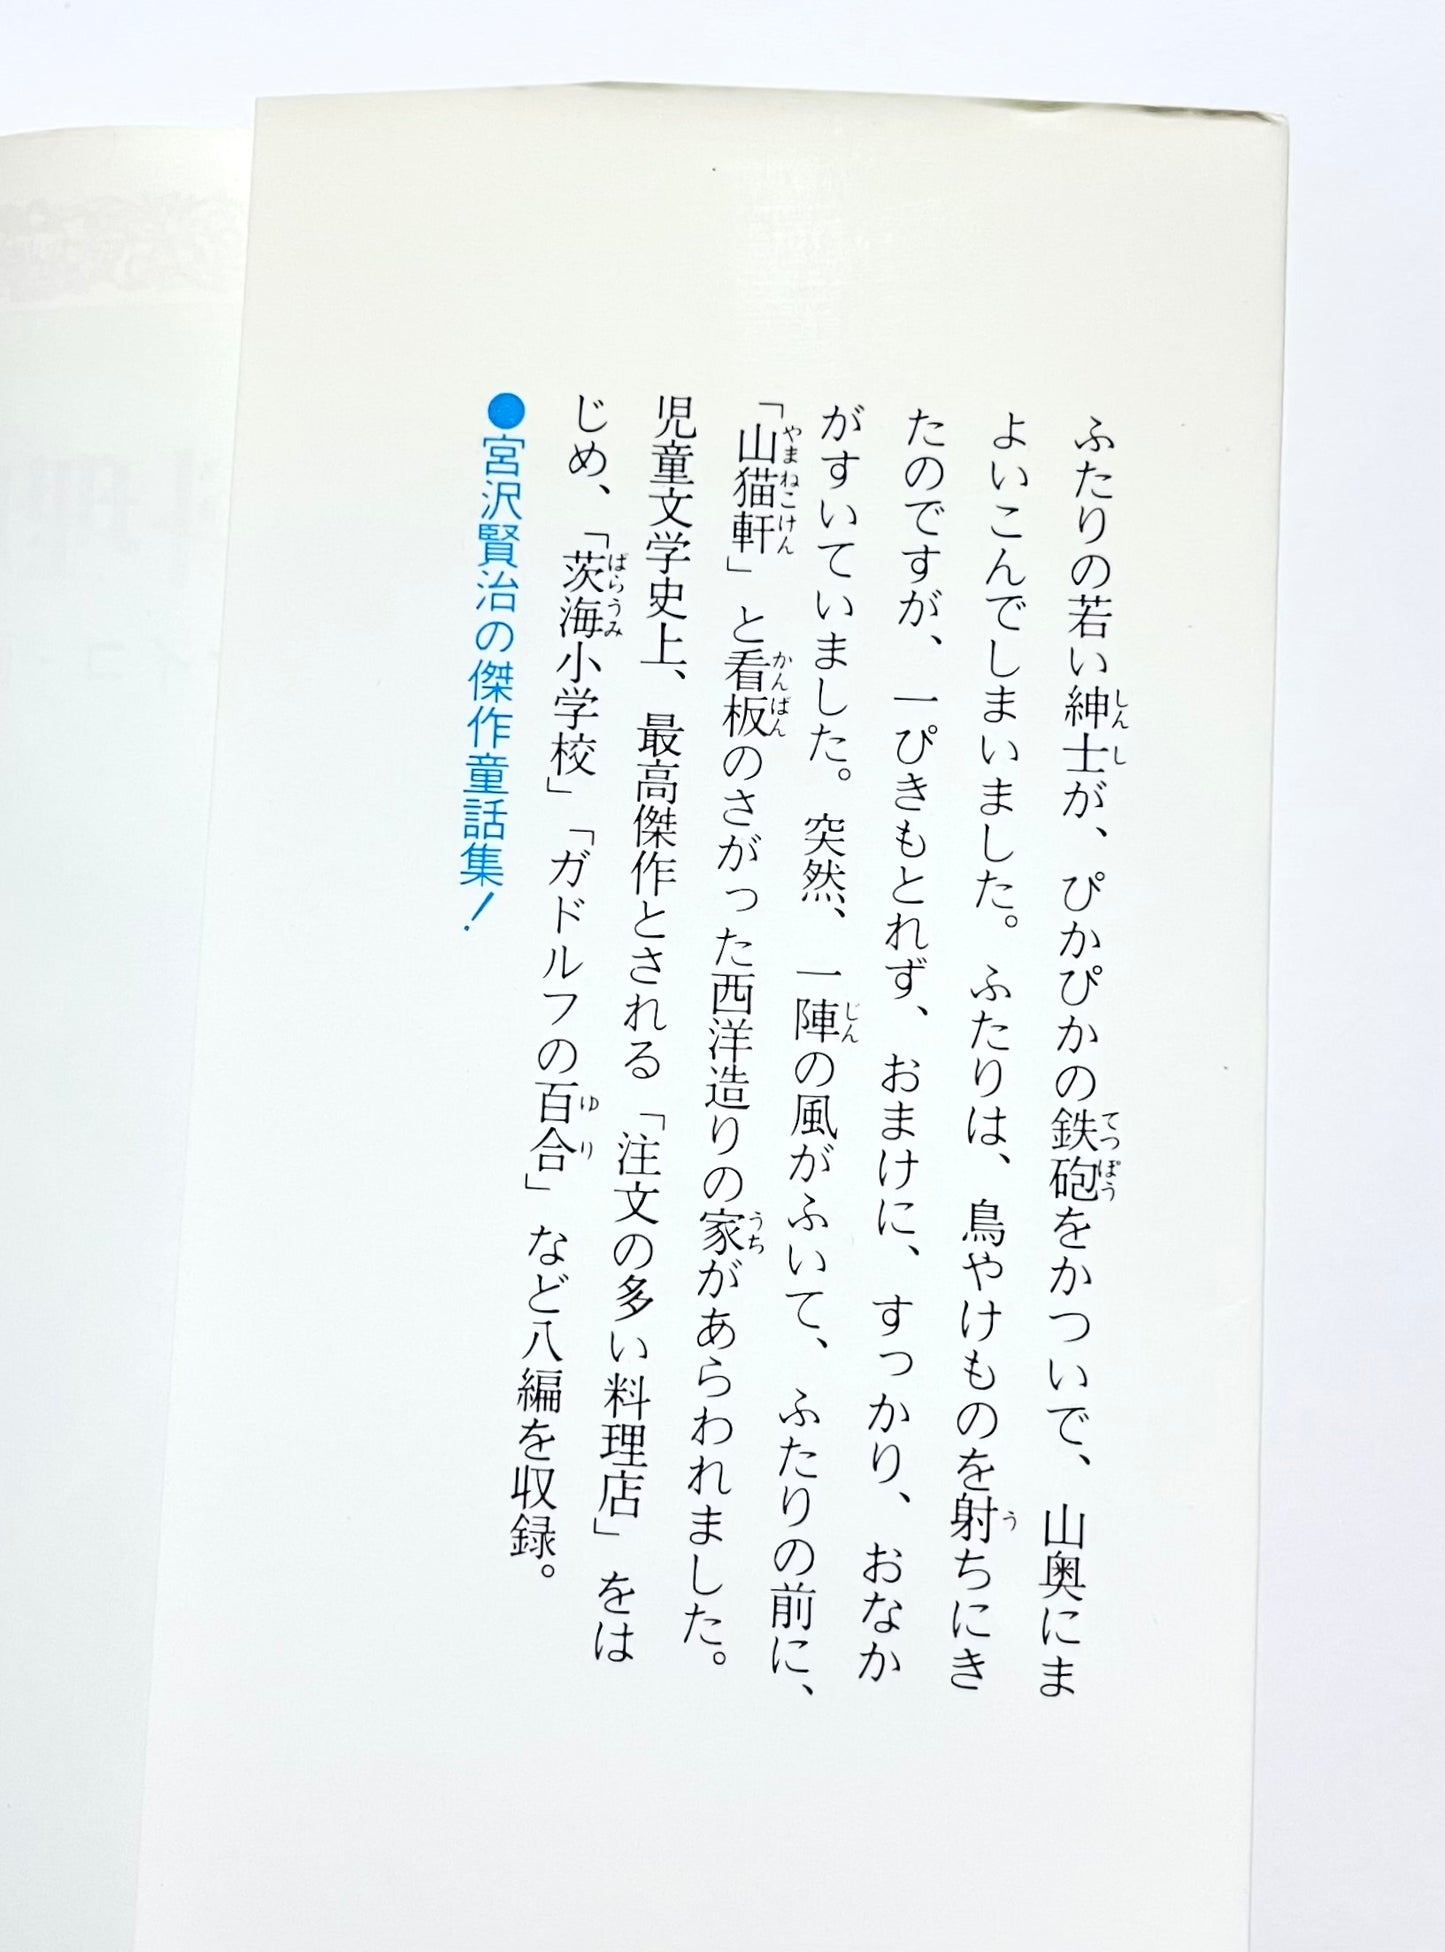 ふたりの若い紳士が、ぴかぴかの鉄砲をかついで、山奥にま
よいこんでしまいました。ふたりは、鳥やけものを射ちにき
たのですが、一ぴきもとれず、おまけに、すっかり、おなか
がすいていました。突然、一陣の風がふいて、ふたりの前に、
「山猫軒」と看板のさがった西洋造りの家があらわれました。
児童文学史上、最高傑作とされる「注文の多い料理店」をは
じめ、「茨海小学校」「ガドルフの百合」など八編を収録。
●宮沢賢治の傑作童話集！